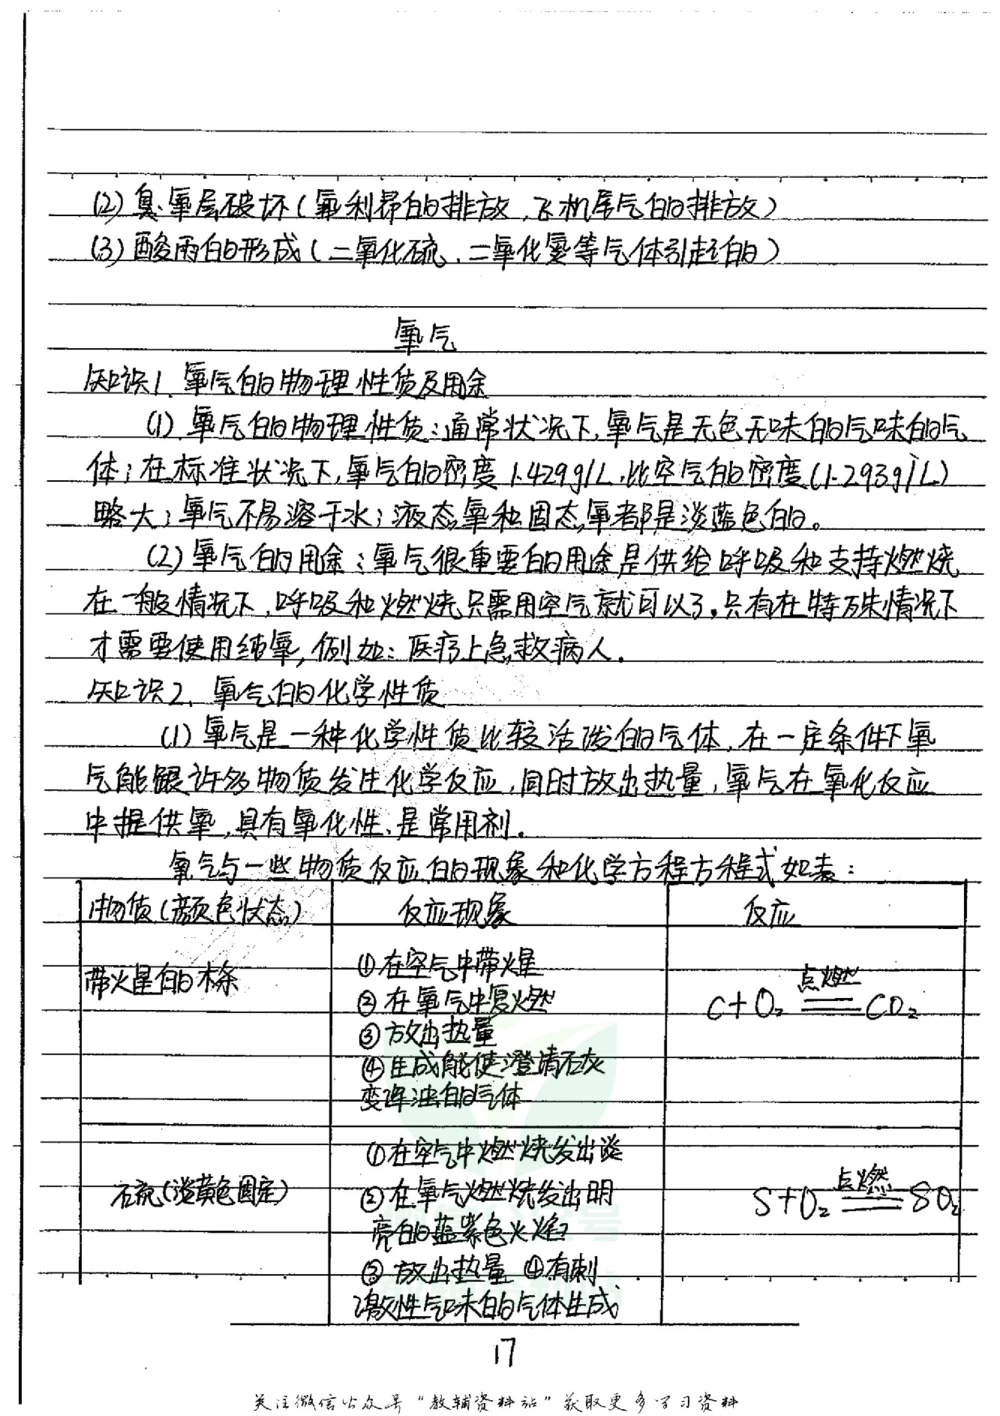 (2) 臭氧层破坏(氟利昂的排放,飞机尾气的排放)
(3) 酸雨的形成(二氧化硫、二氧化氮等气体引起的)
氧气
知识1. 氧气的物理性质及用余
(1) 氧气的物理性质:通常状况下,氧气是无色无味的气味的气
体;在标准状况下,氧气的密度1.429g/L,比空气的密度(1.293g/L)
略大;氧气不易溶于水;液态氧和固态氧都是淡蓝色的。
(2) 氧气的用余:氧气很重要的用余是供给呼吸和支持燃烧
在一般情况下,呼吸和燃烧只需用空气就可以了。只有在特殊情况下
才需要使用纯氧,例如:医疗上急救病人.
知识2. 氧气的化学性质
(1) 氧气是一种化学性质比较活泼的气体,在一定条件下氧
气能跟许多物质发生化学反应,同时放出热量,氧气在氧化反应
中提供氧,具有氧化性、是常用剂.
氧气与一些物质反应的现象和化学方程方程式如表:
物质(颜色状态) 反应现象 反应
带火星的木条
①在空气中带火星
②在氧气中复燃
③放出热量
④生成能使澄清石灰
变浑浊的气体
C+O₂ 点燃 CO₂
硫(淡黄色固定)
①在空气中燃烧发出淡
②在氧气燃烧发出明
亮的蓝紫色火焰
③放出热量 ④有刺
激性气味的气体生成
S+O₂ 点燃 SO₂
17
关注微信公众号"教辅资料站"获取更多学习资料